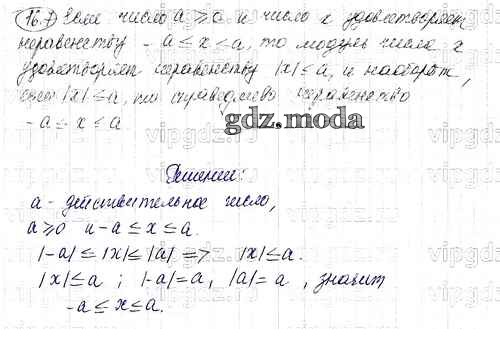 16.7 Если число a ≥ 0 и число x удовлетворяет
неравенству -a ≤ x ≤ a, то модуль числа x
удовлетворяет неравенству |x| ≤ a, и наоборот,
если |x| ≤ a, то справедливо неравенство
-a ≤ x ≤ a
gdz.moda
Решение:
a - действительное число,
a ≥ 0 и -a ≤ x ≤ a.
|-a| ≤ |x| ≤ |a| => |x| ≤ a.
|x| ≤ a ; |-a| = a, |a| = a , значит
-a ≤ x ≤ a.